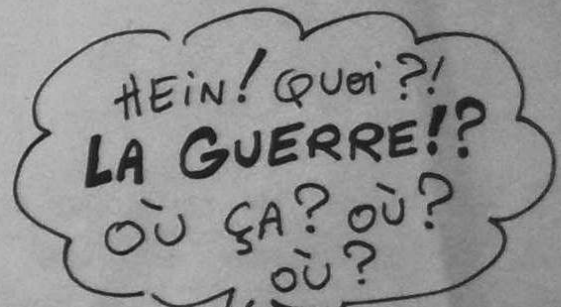 HEiN! QUOi?!
LA GUERRE!?
OÙ ÇA? OÙ?
OÙ?